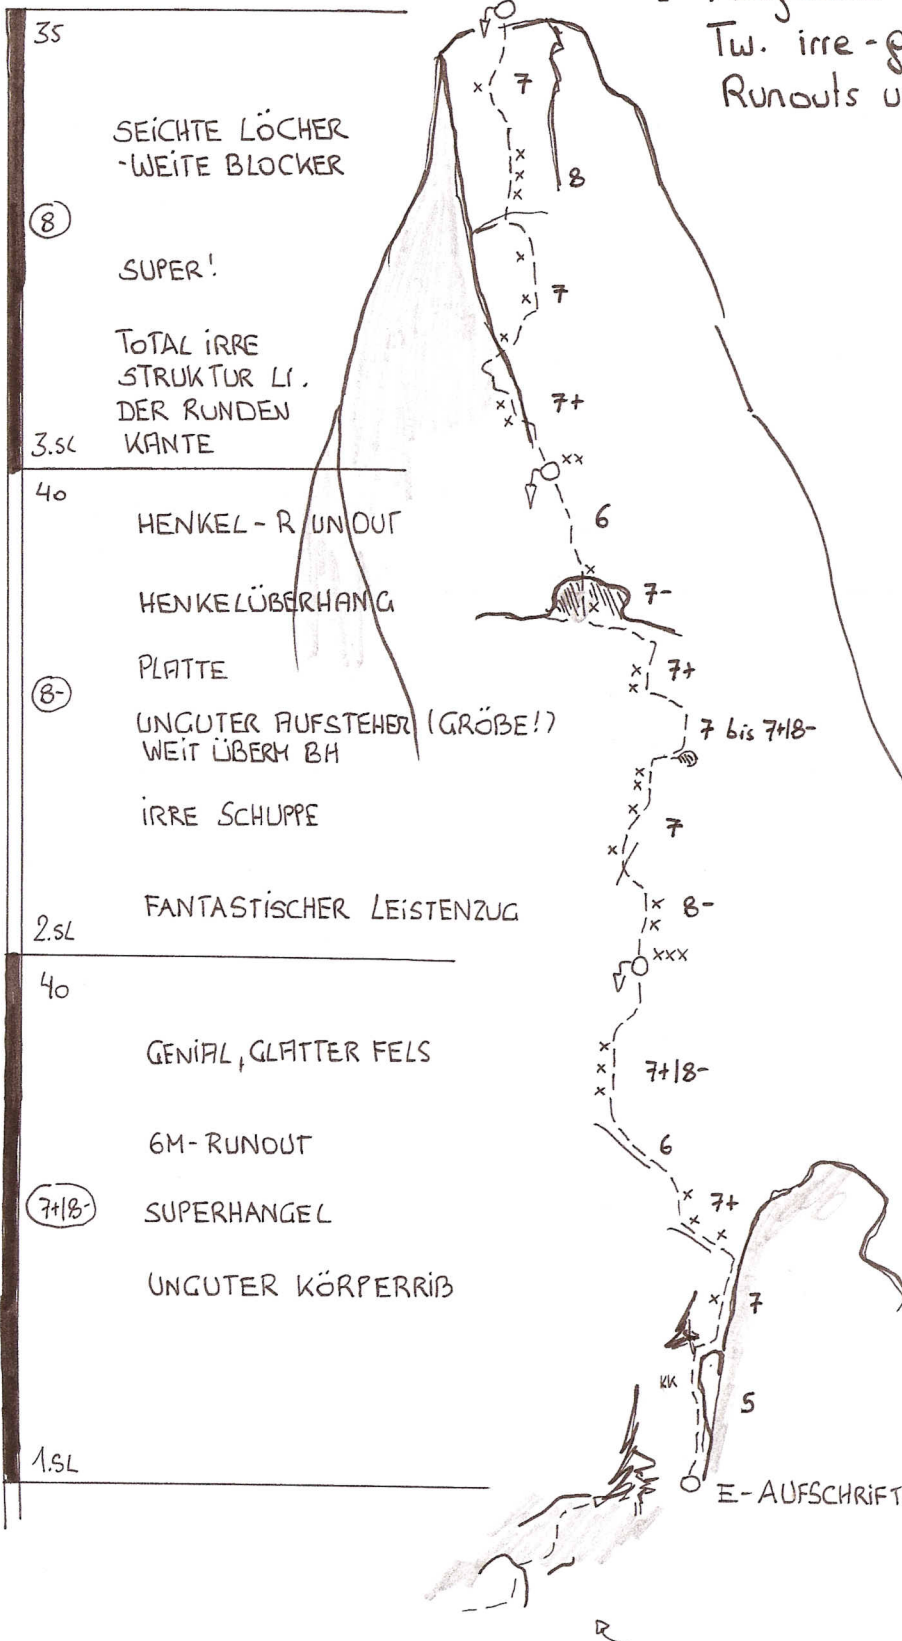 Tw. irre-g
Runouts u
35
7
SEICHTE LÖCHER
-WEITE BLOCKER
8
8
SUPER!
7
TOTAL IRRE
STRUKTUR LI.
DER RUNDEN
KANTE
7+
3.SL
xx
40
HENKEL-RUNOUT
6
HENKELÜBERHANG
7-
PLATTE
7+
8-
UNGUTER AUFSTEHER (GRÖßE!)
WEIT ÜBERM BH
7 bis 7+/8-
IRRE SCHUPPE
7
FANTASTISCHER LEISTENZUG
8-
2.SL
xxx
40
GENIAL, GLATTER FELS
7+/8-
6M-RUNOUT
6
7+/8-
SUPERHANGEL
7+
UNGUTER KÖRPERRIß
7
KK
5
1.SL
E-AUFSCHRIFT